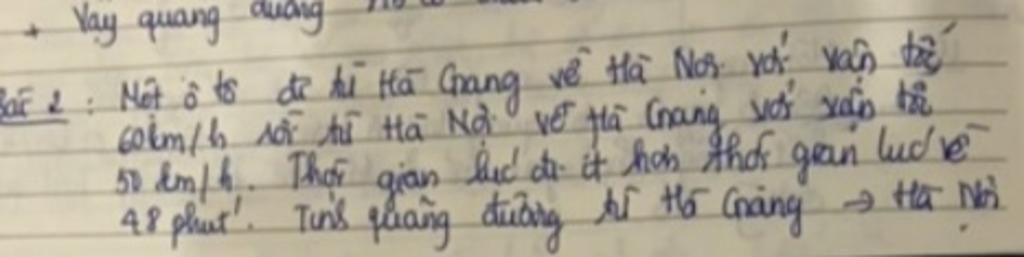 + Vậy quãng đường
Bài 2 : Một ô tô đi từ Hà Giang về Hà Nội với vận tốc
60km/h rồi từ Hà Nội về Hà Giang với vận tốc
50 km/h. Thời gian lúc đi ít hơn thời gian lúc về
48 phút. Tính quãng đường từ Hà Giang → Hà Nội